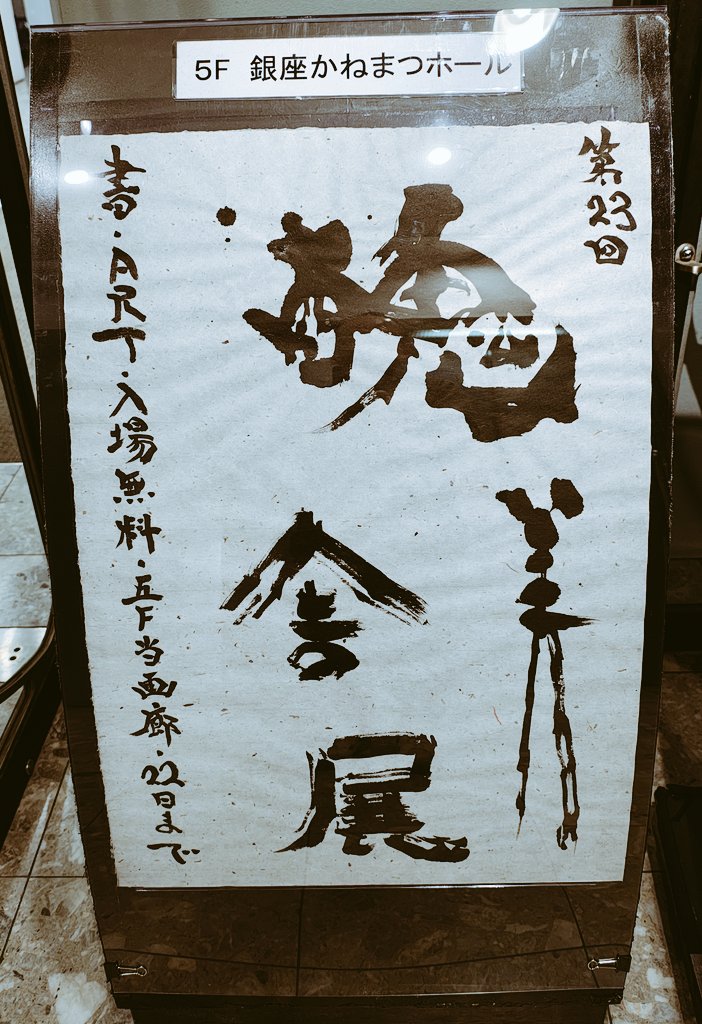 5F 銀座かねまつホール
第23回
美
舎展
書・ART・入場無料・五F当画廊・22日まで